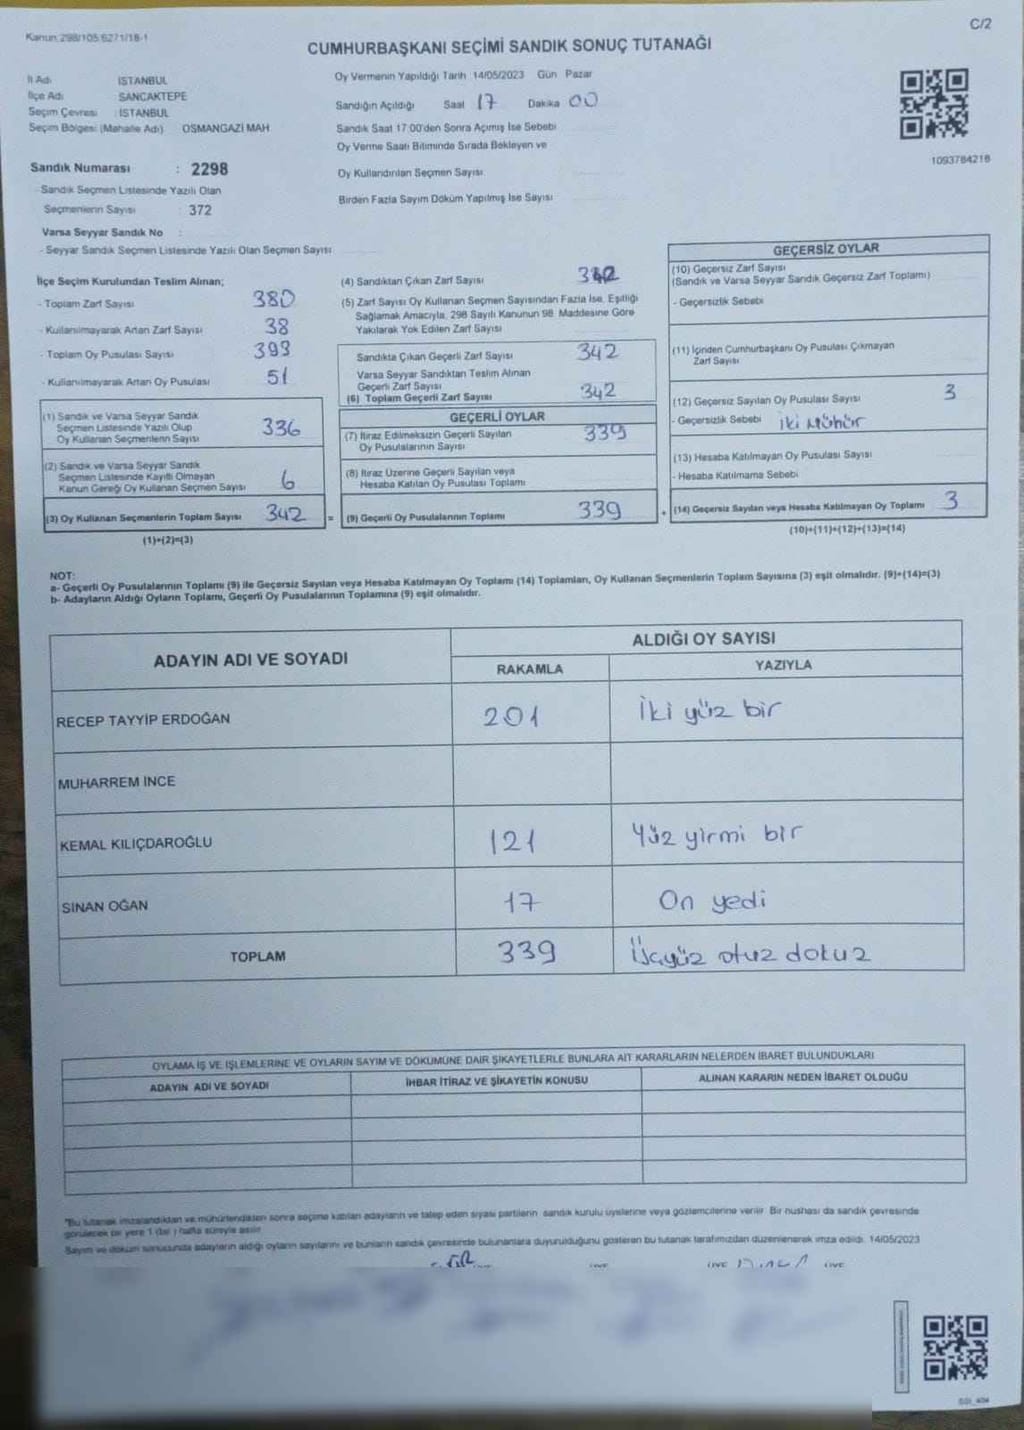 Kanun:298/105 6271/18-1
C/2
CUMHURBAŞKANI SEÇİMİ SANDIK SONUÇ TUTANAĞI
İl Adı İSTANBUL
İlçe Adı SANCAKTEPE
Seçim Çevresi : İSTANBUL
Seçim Bölgesi (Mahalle Adı) OSMANGAZİ MAH
Oy Vermenin Yapıldığı Tarih 14/05/2023 Gün Pazar
Sandığın Açıldığı Saat 17 Dakika 00
Sandık Saat 17:00'den Sonra Açımış İse Sebebi
Oy Verme Saati Bitiminde Sırada Bekleyen ve
Oy Kullandırılan Seçmen Sayısı
Birden Fazla Sayım Döküm Yapılmış İse Sayısı
1093784218
Sandık Numarası : 2298
- Sandık Seçmen Listesinde Yazılı Olan
Seçmenlerin Sayısı 372
Varsa Seyyar Sandık No :
- Seyyar Sandık Seçmen Listesinde Yazılı Olan Seçmen Sayısı
İlçe Seçim Kurulundan Teslim Alınan;
- Toplam Zarf Sayısı 380
- Kullanılmayarak Artan Zarf Sayısı 38
- Toplam Oy Pusulası Sayısı 393
- Kullanılmayarak Artan Oy Pusulası 51
(1) Sandık ve Varsa Seyyar Sandık
Seçmen Listesinde Yazılı Olup
Oy Kullanan Seçmenlerin Sayısı 336
(2) Sandık ve Varsa Seyyar Sandık
Seçmen Listesinde Kayıtlı Olmayan
Kanun Gereği Oy Kullanan Seçmen Sayısı 6
(3) Oy Kullanan Seçmenlerin Toplam Sayısı 342 =
(1)+(2)=(3)
(4) Sandıktan Çıkan Zarf Sayısı 342
(5) Zarf Sayısı Oy Kullanan Seçmen Sayısından Fazla İse, Eşitliği
Sağlamak Amacıyla, 298 Sayılı Kanunun 98. Maddesine Göre
Yakılarak Yok Edilen Zarf Sayısı
Sandıkta Çıkan Geçerli Zarf Sayısı 342
Varsa Seyyar Sandıktan Teslim Alınan
Geçerli Zarf Sayısı
(6) Toplam Geçerli Zarf Sayısı 342
GEÇERLİ OYLAR
(7) İtiraz Edilmeksizin Geçerli Sayılan
Oy Pusulalarının Sayısı 339
(8) İtiraz Üzerine Geçerli Sayılan veya
Hesaba Katılan Oy Pusulası Toplamı
(9) Geçerli Oy Pusulalarının Toplamı 339 +
GEÇERSİZ OYLAR
(10) Geçersiz Zarf Sayısı
(Sandık ve Varsa Seyyar Sandık Geçersiz Zarf Toplamı)
- Geçersizlik Sebebi
(11) İçinden Cumhurbaşkanı Oy Pusulası Çıkmayan
Zarf Sayısı
(12) Geçersiz Sayılan Oy Pusulası Sayısı 3
- Geçersizlik Sebebi iki Mühür
(13) Hesaba Katılmayan Oy Pusulası Sayısı
- Hesaba Katılmama Sebebi
(14) Geçersiz Sayılan veya Hesaba Katılmayan Oy Toplamı 3
(10)+(11)+(12)+(13)=(14)
NOT:
a- Geçerli Oy Pusulalarının Toplamı (9) ile Geçersiz Sayılan veya Hesaba Katılmayan Oy Toplamı (14) Toplamları, Oy Kullanan Seçmenlerin Toplam Sayısına (3) eşit olmalıdır. (9)+(14)=(3)
b- Adayların Aldığı Oyların Toplamı, Geçerli Oy Pusulalarının Toplamına (9) eşit olmalıdır.
ADAYIN ADI VE SOYADI ALDIĞI OY SAYISI
RAKAMLA YAZIYLA
RECEP TAYYİP ERDOĞAN 201 İki yüz bir
MUHARREM İNCE
KEMAL KILIÇDAROĞLU 121 Yüz yirmi bir
SİNAN OĞAN 17 On yedi
TOPLAM 339 Üçyüz otuz dokuz
OYLAMA İŞ VE İŞLEMLERİNE VE OYLARIN SAYIM VE DÖKÜMÜNE DAİR ŞİKAYETLERLE BUNLARA AİT KARARLARIN NELERDEN İBARET BULUNDUKLARI
ADAYIN ADI VE SOYADI İHBAR İTİRAZ VE ŞİKAYETİN KONUSU ALINAN KARARIN NEDEN İBARET OLDUĞU
"Bu tutanak imzalandıktan ve mühürlendikten sonra seçime katılan adayların ve talep eden siyasi partilerin sandık kurulu üyelerine veya gözlemcilerine verilir. Bir nüshası da sandık çevresinde
görülecek bir yere 1 (bir ) hafta süreyle asılır
Sayım ve döküm sonucunda adayların aldığı oyların sayılarını ve bunların sandık çevresinde bulunanlara duyurulduğunu gösteren bu tutanak tarafımızdan düzenlenerek imza edildi. 14/05/2023